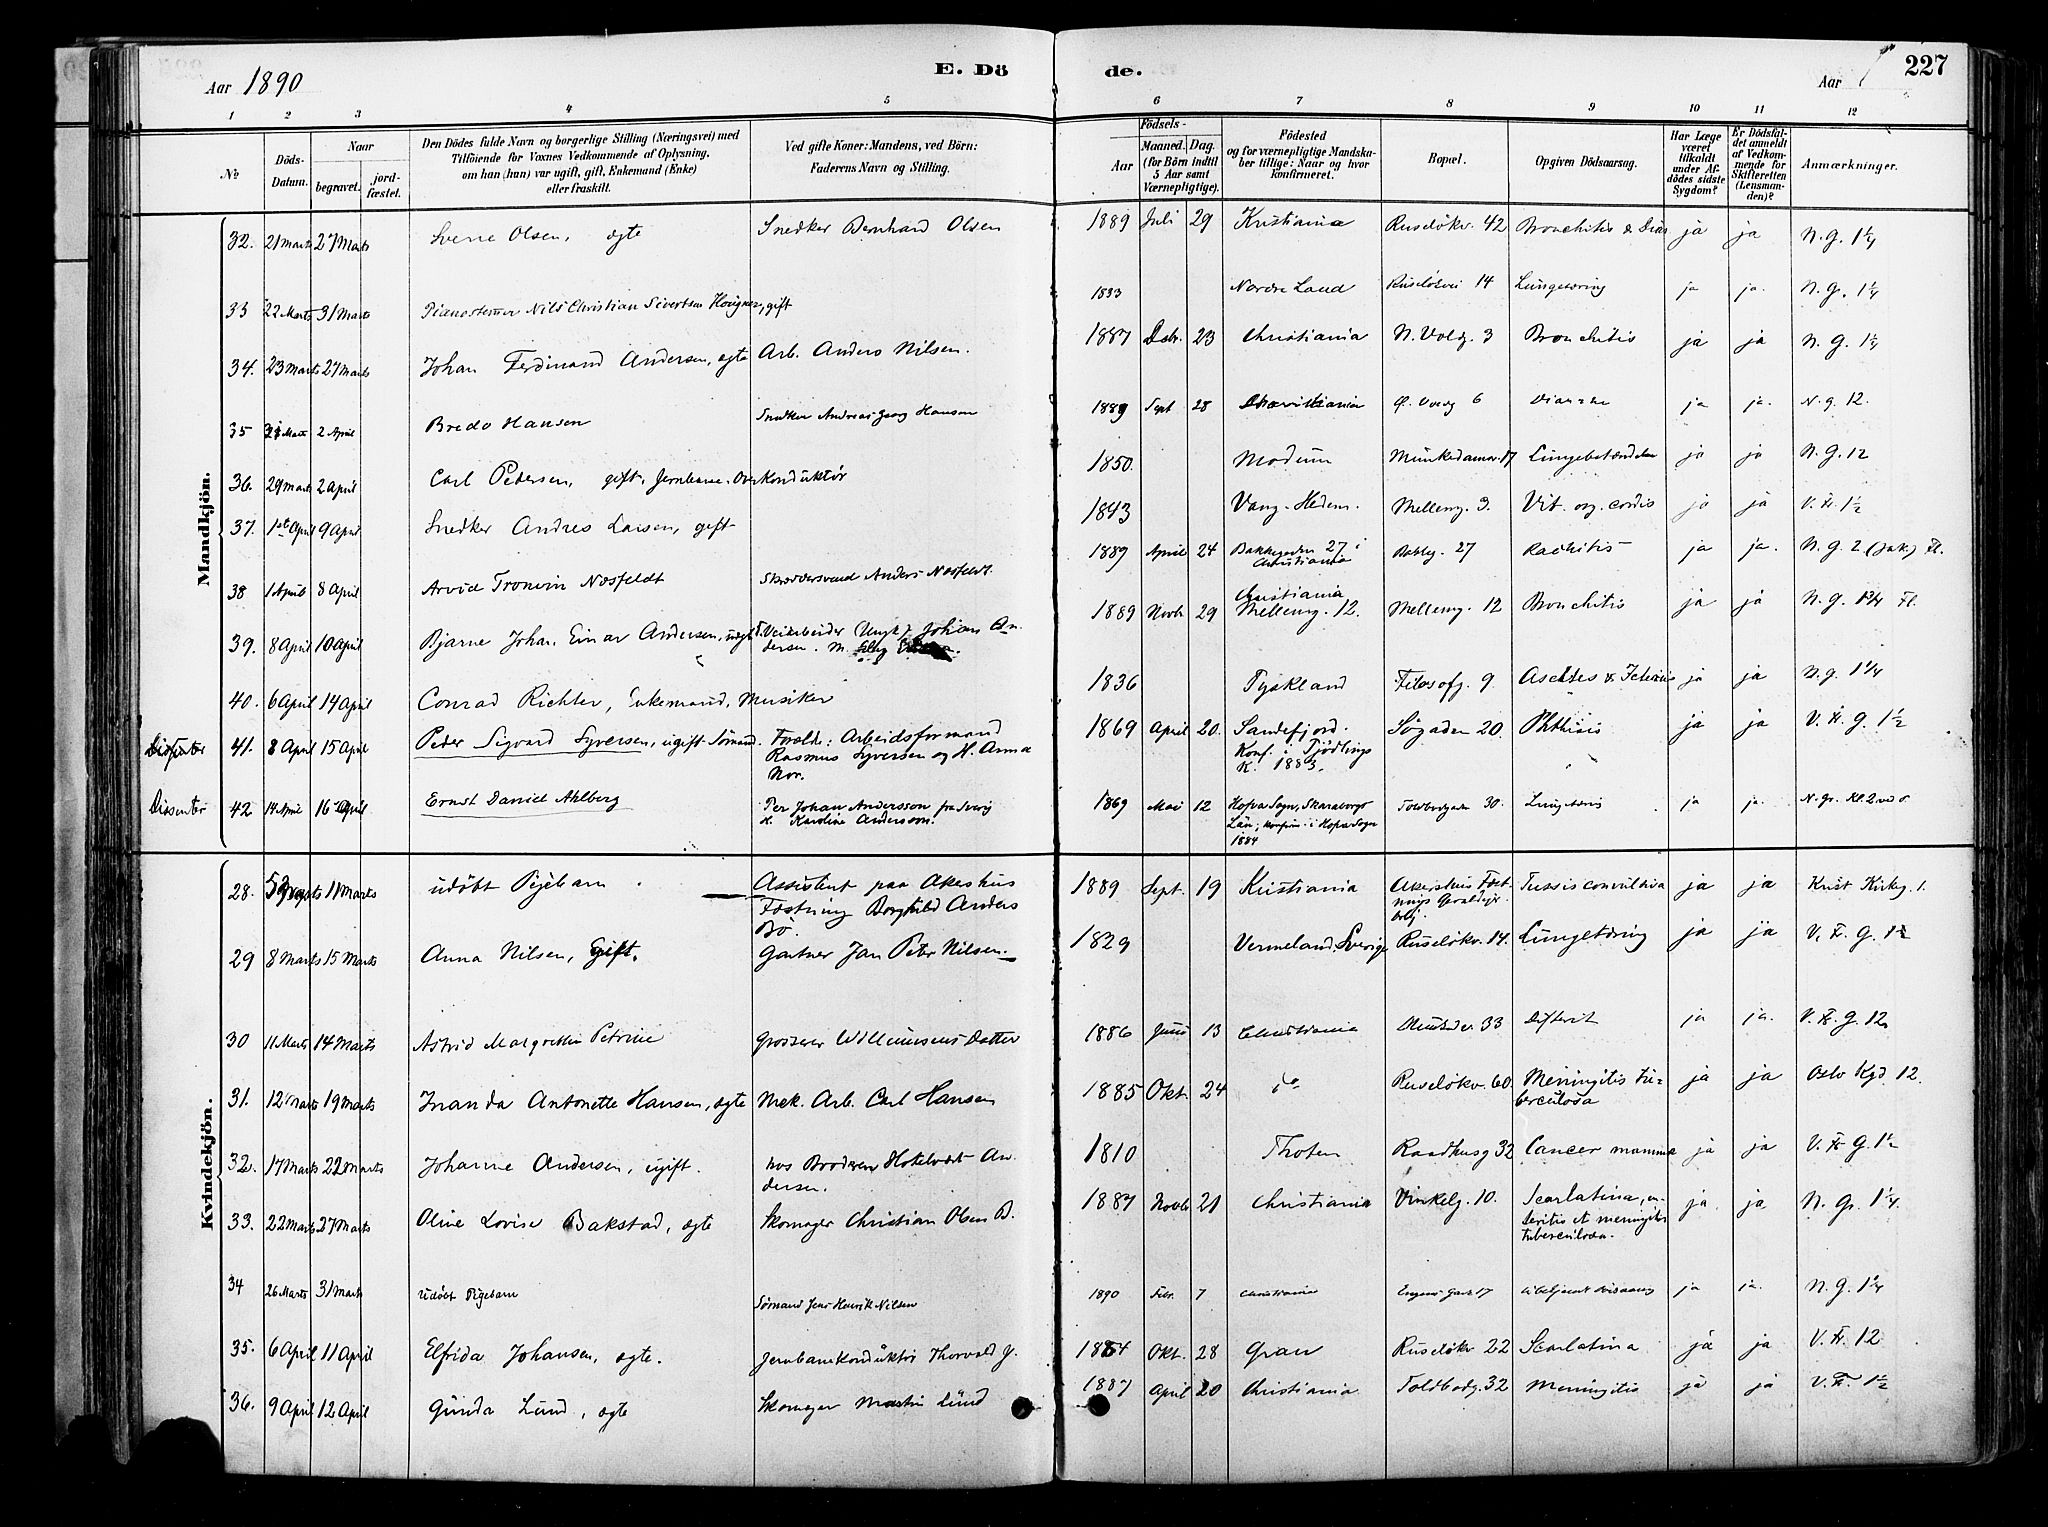 Aar 1890
E. Dö
de.
Aar
227
1 2 3 4 5 6 7 8 9 10 11 12
No
Döds-Datum.
Naar
begravet.
jordfæstet.
Den Dödes fulde Navn og borgerlige Stilling (Næringsvei) med
Tilföiende for Voxnes Vedkommende af Oplysning,
om han (hun) var ugift, gift, Enkemand (Enke)
eller fraskilt.
Ved gifte Koner: Mandens, ved Börn:
Faderens Navn og Stilling.
Födsels-
Aar
Maaned. Dag.
(for Börn indtil
5 Aar samt
Værnepligtige).
Födested
og for værnepligtige Mandskaber
tillige: Naar og hvor
konfirmeret.
Bopæl.
Opgiven Dödsaarsag.
Har Læge
været
tilkaldt
under Afdödes
sidste
Sygdom?
Er Dödsfaldet
anmeldt
af Vedkommende
for
Skifteretten
(Lensmanden)?
Anmærkninger.
Mandkjön.
32. 21 Marts 27 Marts Sverre Olsen, ægte Snedker Bernhard Olsen 1889 Juli 29 Kristiania Ruseløkv. 42 Bronchitis & ja ja N. G. 1 1/4
33 22 Marts 31 Marts Pianostemmer Nils Christian Sivertsen gift 1833 Nordre Land Ruseløkvei 14 Lungetæring ja ja. N. G. 1 1/4
34. 23 Marts 27 Marts Johan Ferdinand Andersen, ægte Arb. Anders Nilsen. 1887 Debr. 23 Christiania N. Voldg. 3 Bronchitis ja ja N. G. 1 1/4
35 Marts 2 April Bredo Hansen Snedker Andreas Georg Hansen 1889 Sept 28 Christiania Ø. Voldg 6 ja ja. N. G. 12.
36. 29 Marts 2 April Carl Pedersen, gift, Jernbane-Overkonduktør 1850. Modum Munkedamsv. 17 Lungebetændelse ja ja N. G. 12
37. 1st April 9 April Snedker Andres Larsen, gift 1843 Vang. Hedem. Mellemg. 3. Vit. org. cordis ja ja V. Fr. 1 1/2
38 1 April 8 April Arvid Tronvin Næsfeldt Skræddersvend Anders Næsfeldt. 1889 April 24 Bakkegaden 27 i Christiania Bakkeg. 27 Rachitis ja ja. N. G. 2 (Jak.) Fl.
39. 8 April 10 April Bjarne Johan Einar Andersen, Veiarbeider (Ungk.) Johan Andersen. 1889 Novb. 29 Christiania Mellemg. 12. Mellemg. 12 Bronchitis ja ja N. G. Fl.
40. 6 April 14 April Conrad Richter, Enkemand, Musiker 1836 Tyskland Filosofg. 9 Ascites & Icterus ja ja N. G. 1 1/4
Dissenter 41. 8 April 15 April Peder Sigvard Syversen, ugift Sømand. Foræld: Arbeidsformand
Rasmus Syversen og H. Anna
Nor. 1869 April 20. Sandefjord.
Konf. i Tjødlings
K. 1883. Søgaden 20. Phthisis ja ja V. Fr. G. 1 1/2
Dissenter 42 14 April 16 April Ernst Daniel Ahlberg Per Johan Andersson fra Sverig
H. Karoline Andersson. 1869 Mai 12 Hofva Sogn, Skaraborgs
Län; konfirm. i Hofva Sogn
1884 Toldbodgaden 30. ja ja. N. Gr. Kl. 2
Kvindekjön.
28. Marts 11 Marts udøbt Pigebarn Assistent paa Akershus
Fæstning Anders
Bø. 1889 Sept. 19 Kristiania Akershus Fæstnings Tussis convulsiva ja ja Krist Kirkeg. 1.
29 8 Marts 15 Marts Anna Nilsen, Gift. Gartner Jan Peter Nilsen. 1829 Vermeland, Sverige Ruseløkv. 14. Lungetæring ja ja V. Fr. G. 1 1/2
30 11 Marts 14 Marts Astrid Margrethe Petrine Grosserer Willumsens Datter 1886 Juni 13 Christiania 33 Difterit ja ja. V. Fr. G. 12
31. 12 Marts 19 Marts Inanda Antonette Hansen, ægte Mek. Arb. Carl Hansen 1885 Okt. 24 do Ruseløkv. 60 Meningitis tuberculosa ja ja Oslo Kgd 12.
32. 17 Marts 22 Marts Johanne Andersen, ugift. hos Broderen Hotelvært Andersen. 1810 Thoten Raadhusg 32 Cancer mamma ja ja V. Fr G. 1 1/2
33. 22 Marts 27 Marts Oline Lovise Bakstad, ægte Skomager Christian Olsen B. 1887 Novb 21 Christiania Vinkelg. 10. Scarlatina, enteritis et meningitis
tuberculosa. ja ja N. Gr. 1 1/4.
34 26 Marts 31 Marts Udøbt Pigebarn Sømand Jens Henrik Nilsen 1890 Febr. 7 Christiania 17 ja ja. N. G. 1 1/4
35. 6 April 11 April Elfrida Johansen, ægte. Jernbanekonduktør Thorvald J. 1884 Okt. 28 Gran Ruseløkv 22 Scarlatina ja ja V. Fr. 12
36. 9 April 12 April Gunda Lund, ægte Skomager Martin Lund 1887 April 20 Christiania Toldbodg. 32 Meningitis ja ja V. Fr. 1 1/2